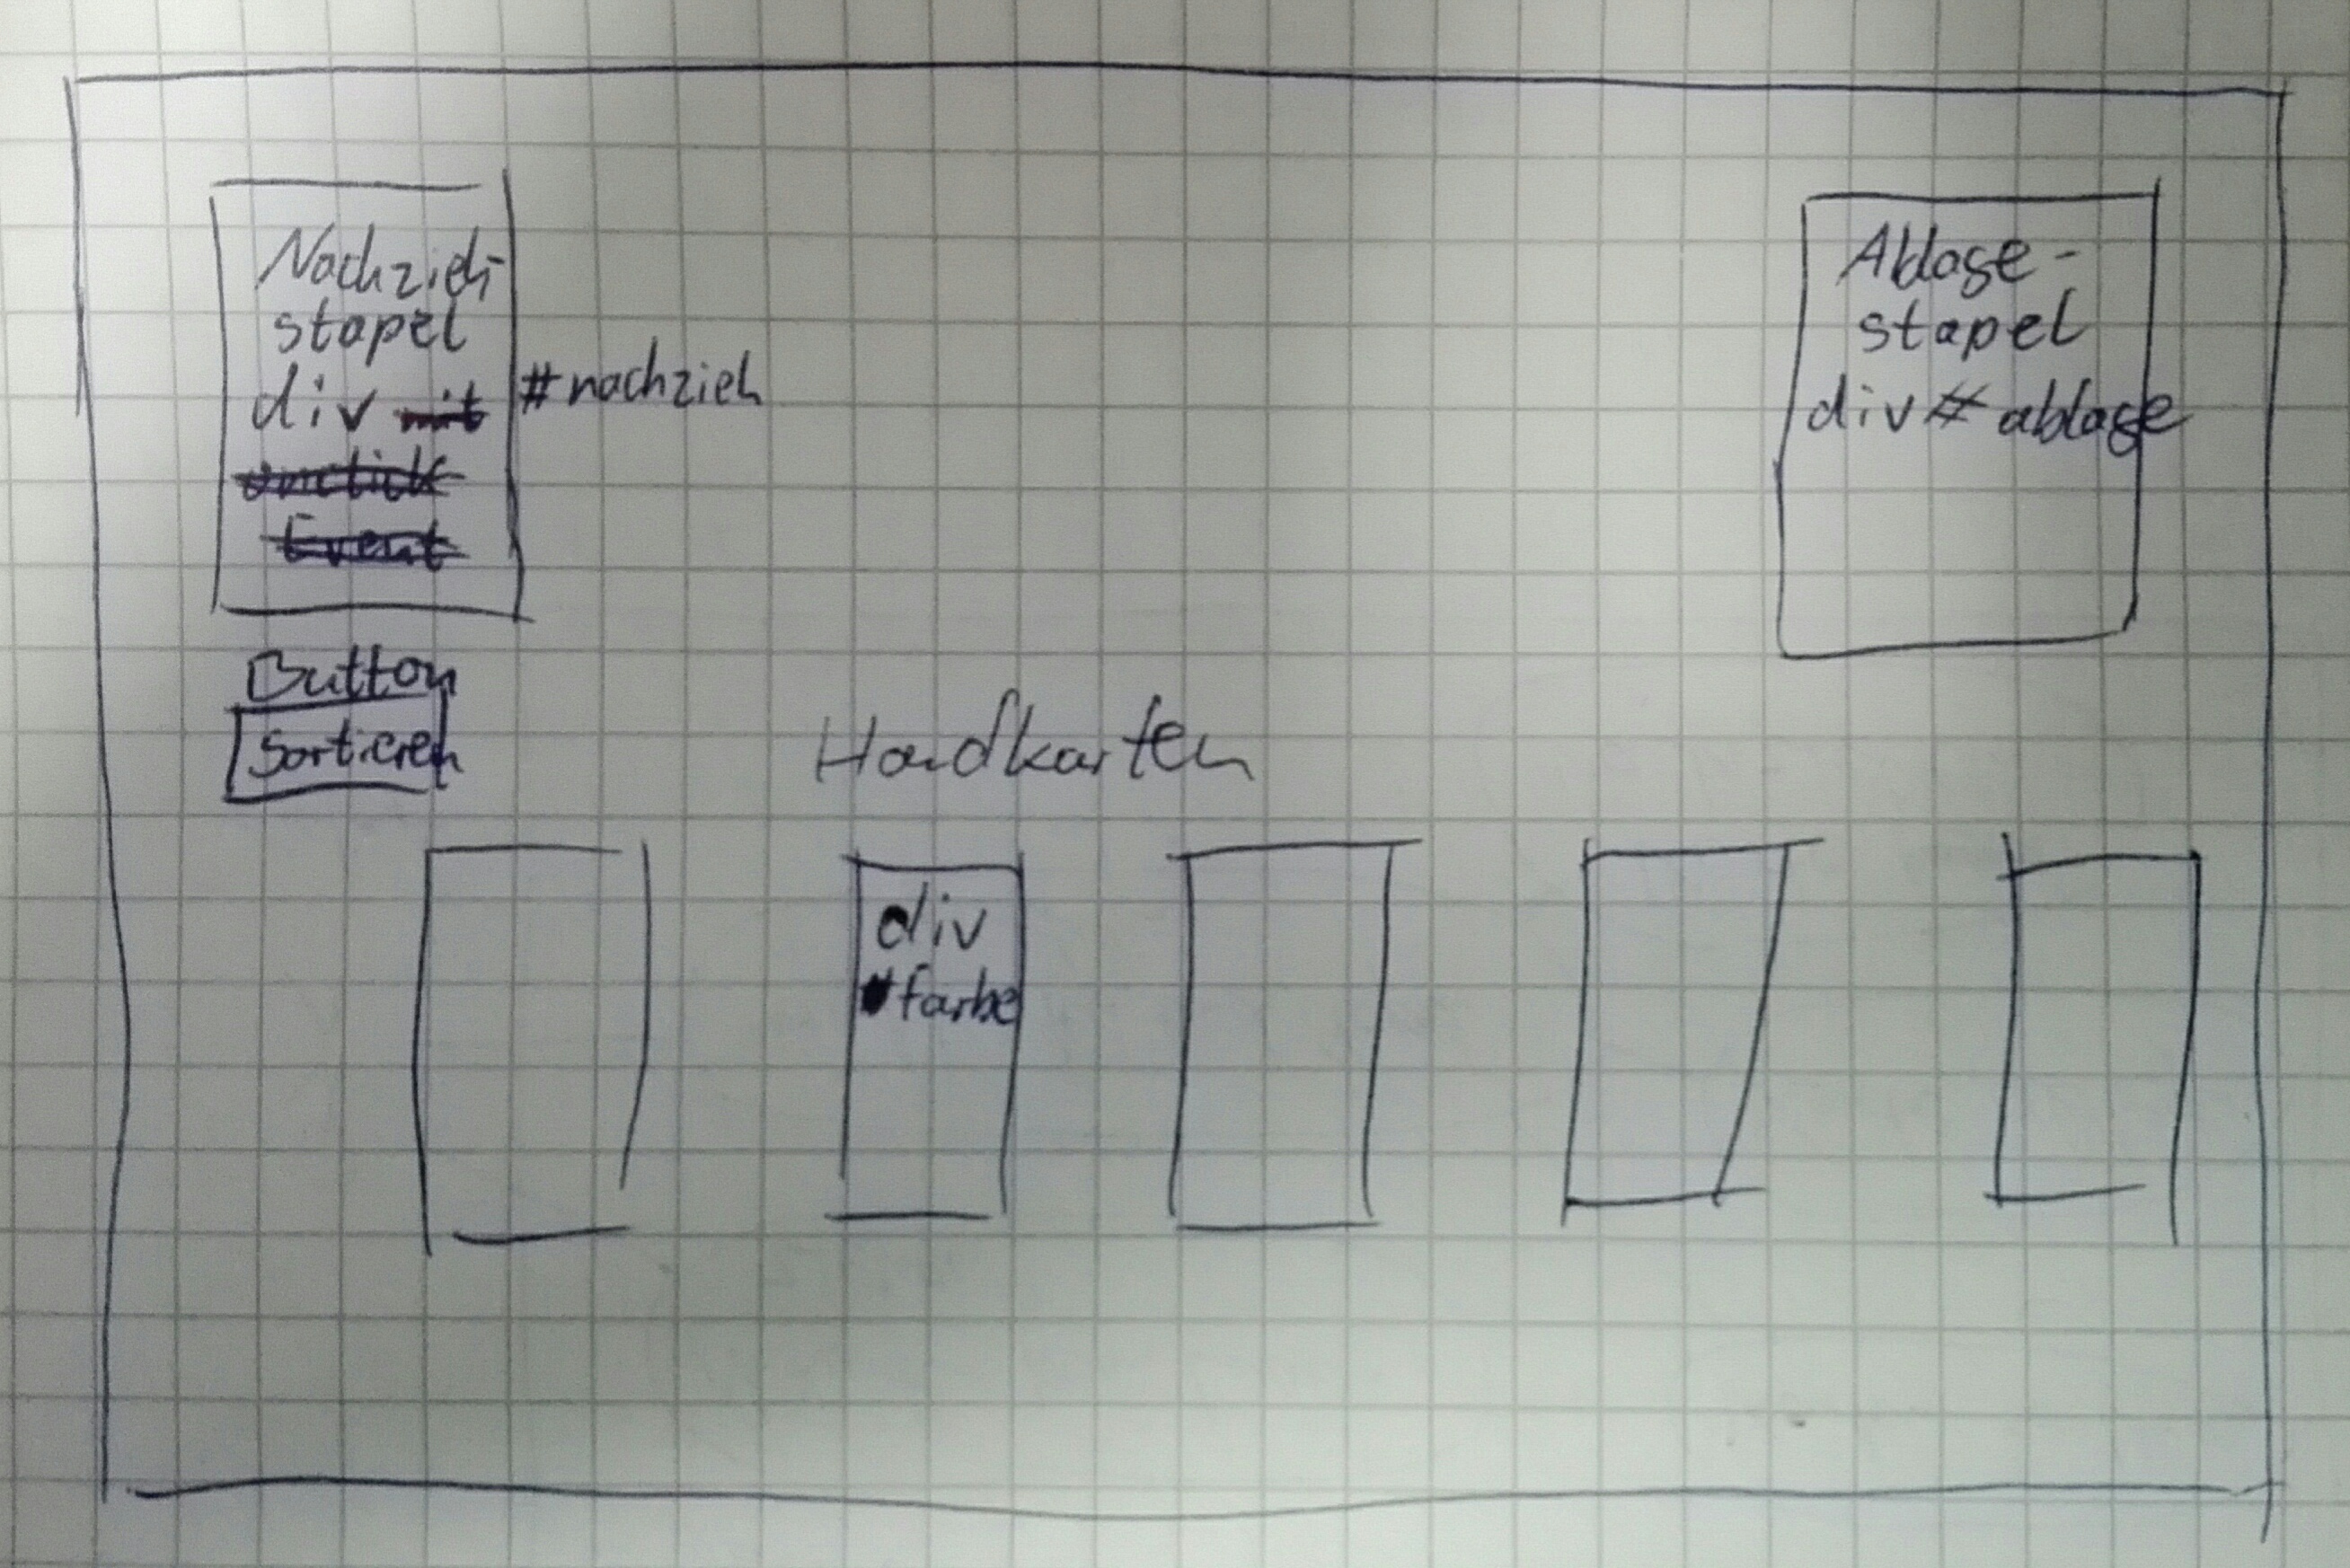 Nachzieh-
stapel
div mit #nachzieh
onclick
Event
Ablage-
stapel
div # ablage
Button
Sortieren
Handkarten
div
#farbe